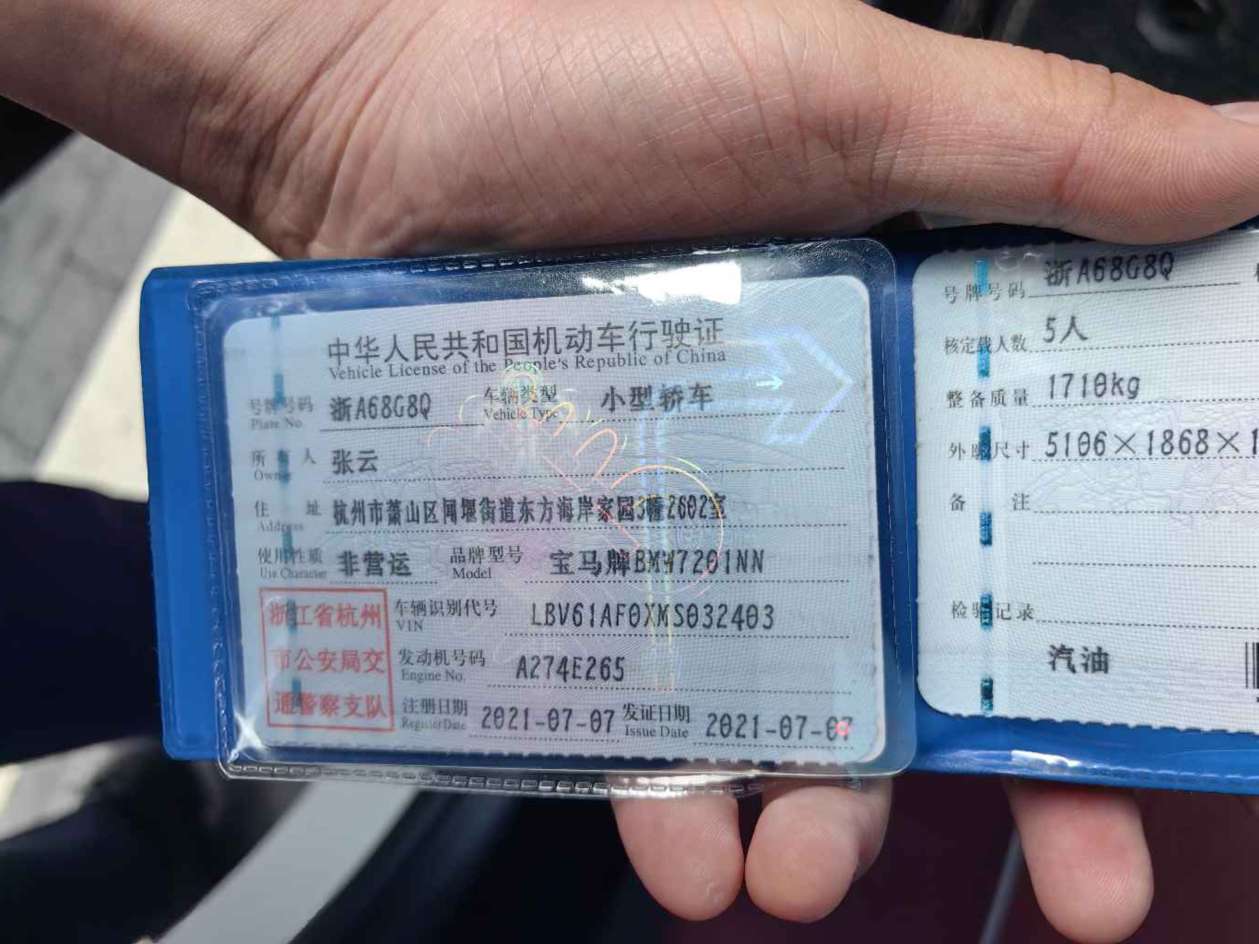 中华人民共和国机动车行驶证
Vehicle License of the People's Republic of China
号牌号码 浙A68G8Q 车辆类型 小型轿车
Plate No. Vehicle Type
所有人 张云
Owner
住址 杭州市萧山区闻堰街道东方海岸家园3幢2602室
Address
使用性质 非营运 品牌型号 宝马牌BMW7201NN
Use Character Model
浙江省杭州
市公安局交
通警察支队
车辆识别代号 LBV61AF0XMS032403
VIN
发动机号码 A274E265
Engine No.
注册日期 2021-07-07 发证日期 2021-07-07
Register Date Issue Date
号牌号码 浙A68G8Q
核定载人数 5人
整备质量 1710kg
外廓尺寸 5106×1868×1
备注
检验记录
汽油